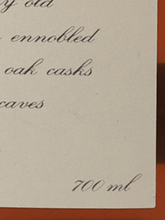 old
ennobled
oak casks
caves
700 ml